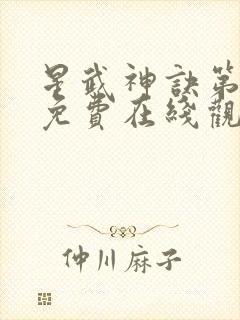 星武神訣第
免費在綫觀
仲川麻子